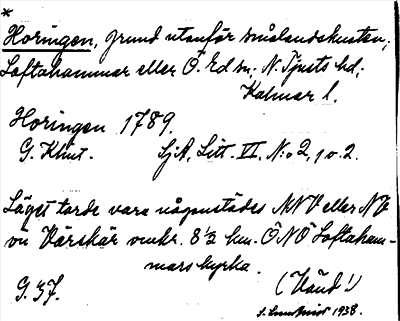 *
Horingen, grund utanför smålandskusten;
Loftahammar eller Ö. Ed sn, N. Tjusts hd;
Kalmar l.
Horingen 1789.
G. Klint. SjA, Litt. VI. N:o 2, 1 o. 2.
Läget torde vara någonstädes NNV eller NV
om Vårskär omkr. 8 1/2 km. ÖNÖ Loftaham-
mars kyrka.
G. 37. (Vänd!)
1938.